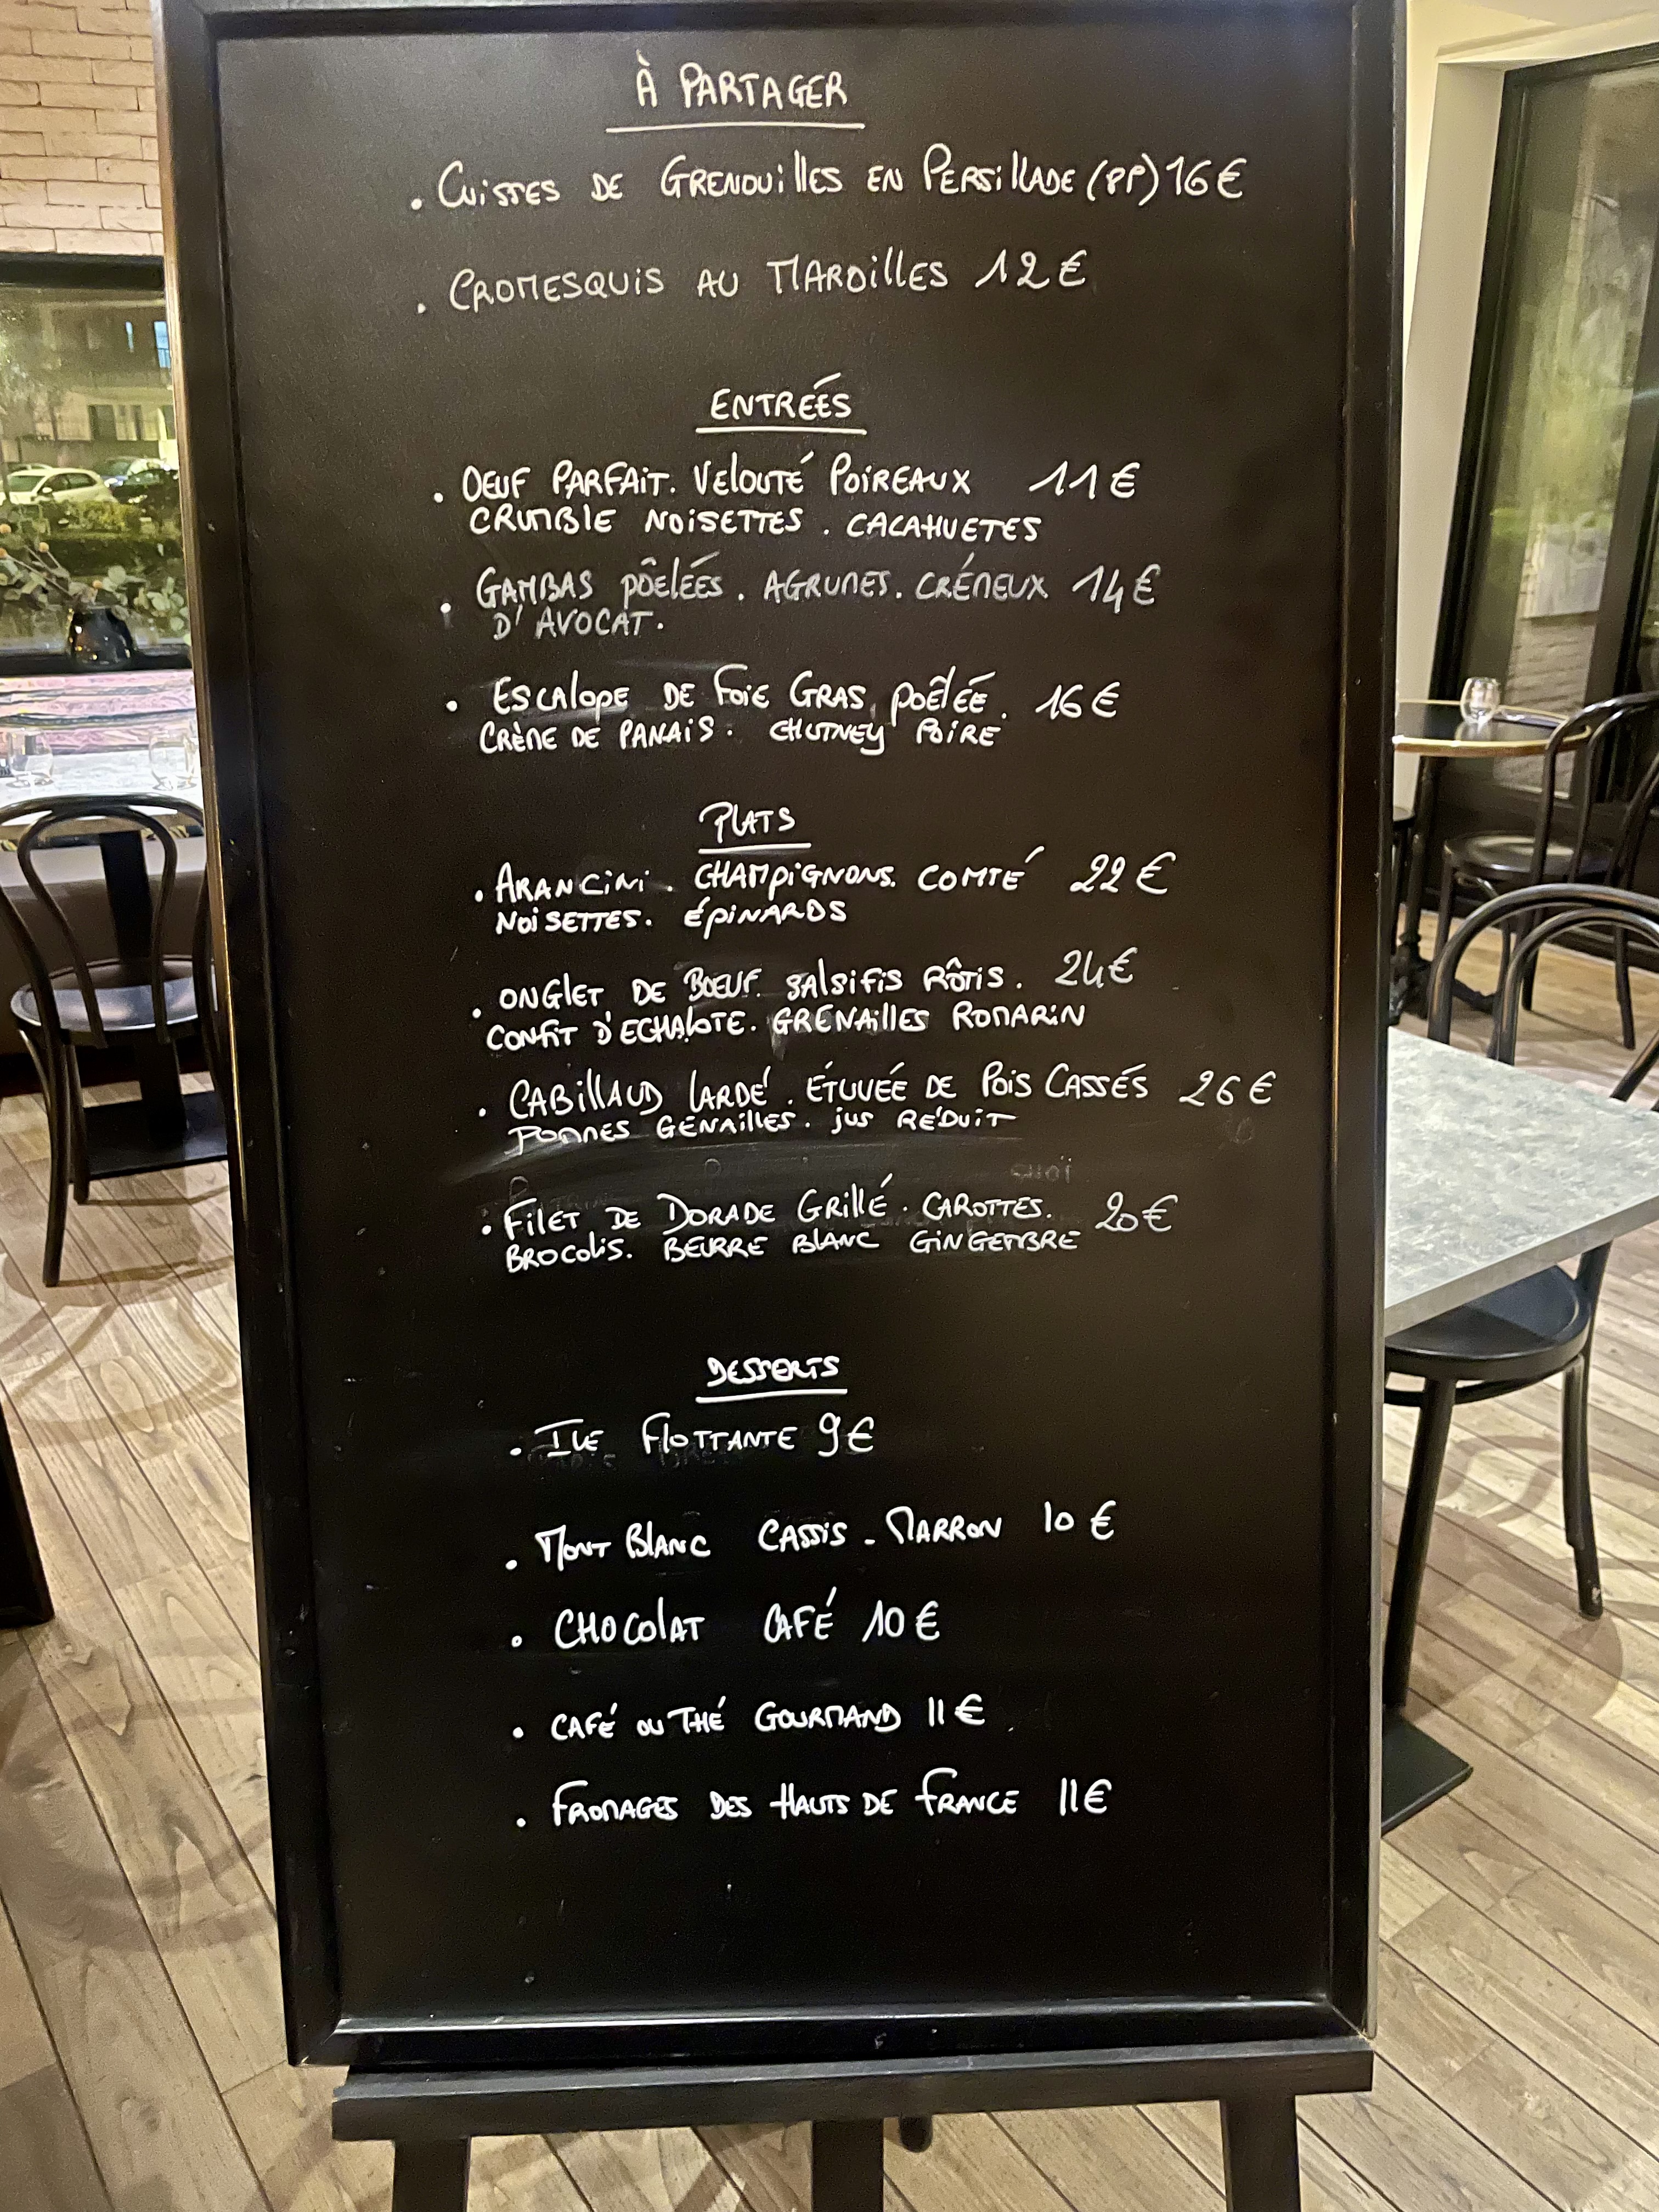 À PARTAGER
. CUISSES DE GRENOUILLES EN PERSILLADE (PP) 16€
. CROMESQUIS AU MAROILLES 12€
ENTRÉES
. OEUF PARFAIT. VELOUTÉ POIREAUX 11€
CRUMBLE NOISETTES . CACAHUETES
. GAMBAS PÔELÉES . AGRUMES. CRÉMEUX 14€
D'AVOCAT.
. ESCALOPE DE FOIE GRAS POÊLÉE. 16€
CRÈME DE PANAIS. CHUTNEY POIRE
PLATS
. ARANCINI . CHAMPIGNONS. COMTÉ 22€
NOISETTES. ÉPINARDS
. ONGLET DE BOEUF. SALSIFIS RÔTIS. 24€
CONFIT D'ECHALOTE. GRENAILLES ROMARIN
. CABILLAUD LARDÉ . ÉTUVÉE DE POIS CASSÉS 26€
POMMES GENAILLES. JUS RÉDUIT
. FILET DE DORADE GRILLÉ. CAROTTES. 20€
BROCOLIS. BEURRE BLANC GINGEMBRE
DESSERTS
. ILE FLOTTANTE 9€
. MONT BLANC CASSIS - MARRON 10€
. CHOCOLAT CAFÉ 10€
. CAFÉ OU THÉ GOURMAND 11€
. FROMAGES DES HAUTS DE FRANCE 11€